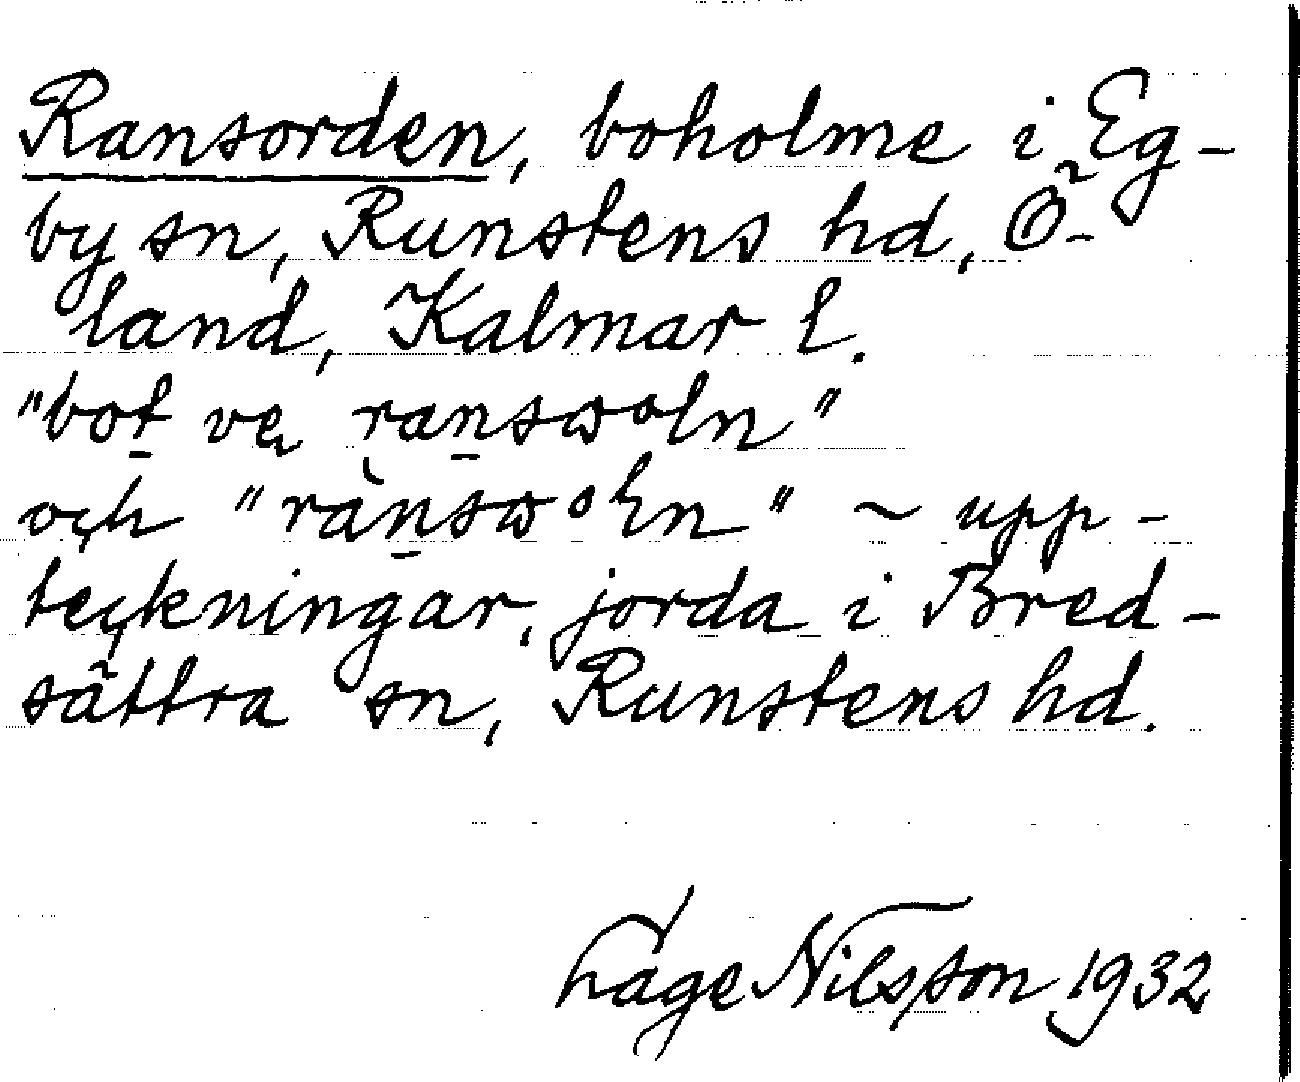 Ransorden, boholme i Eg-
by sn, Runstens hd, Ö-
land, Kalmar l.
"bot ve
och " ~ upp-
teckningar, jorda i Bred-
sättra sn, Runstens hd.
Tage Nilsson 1932